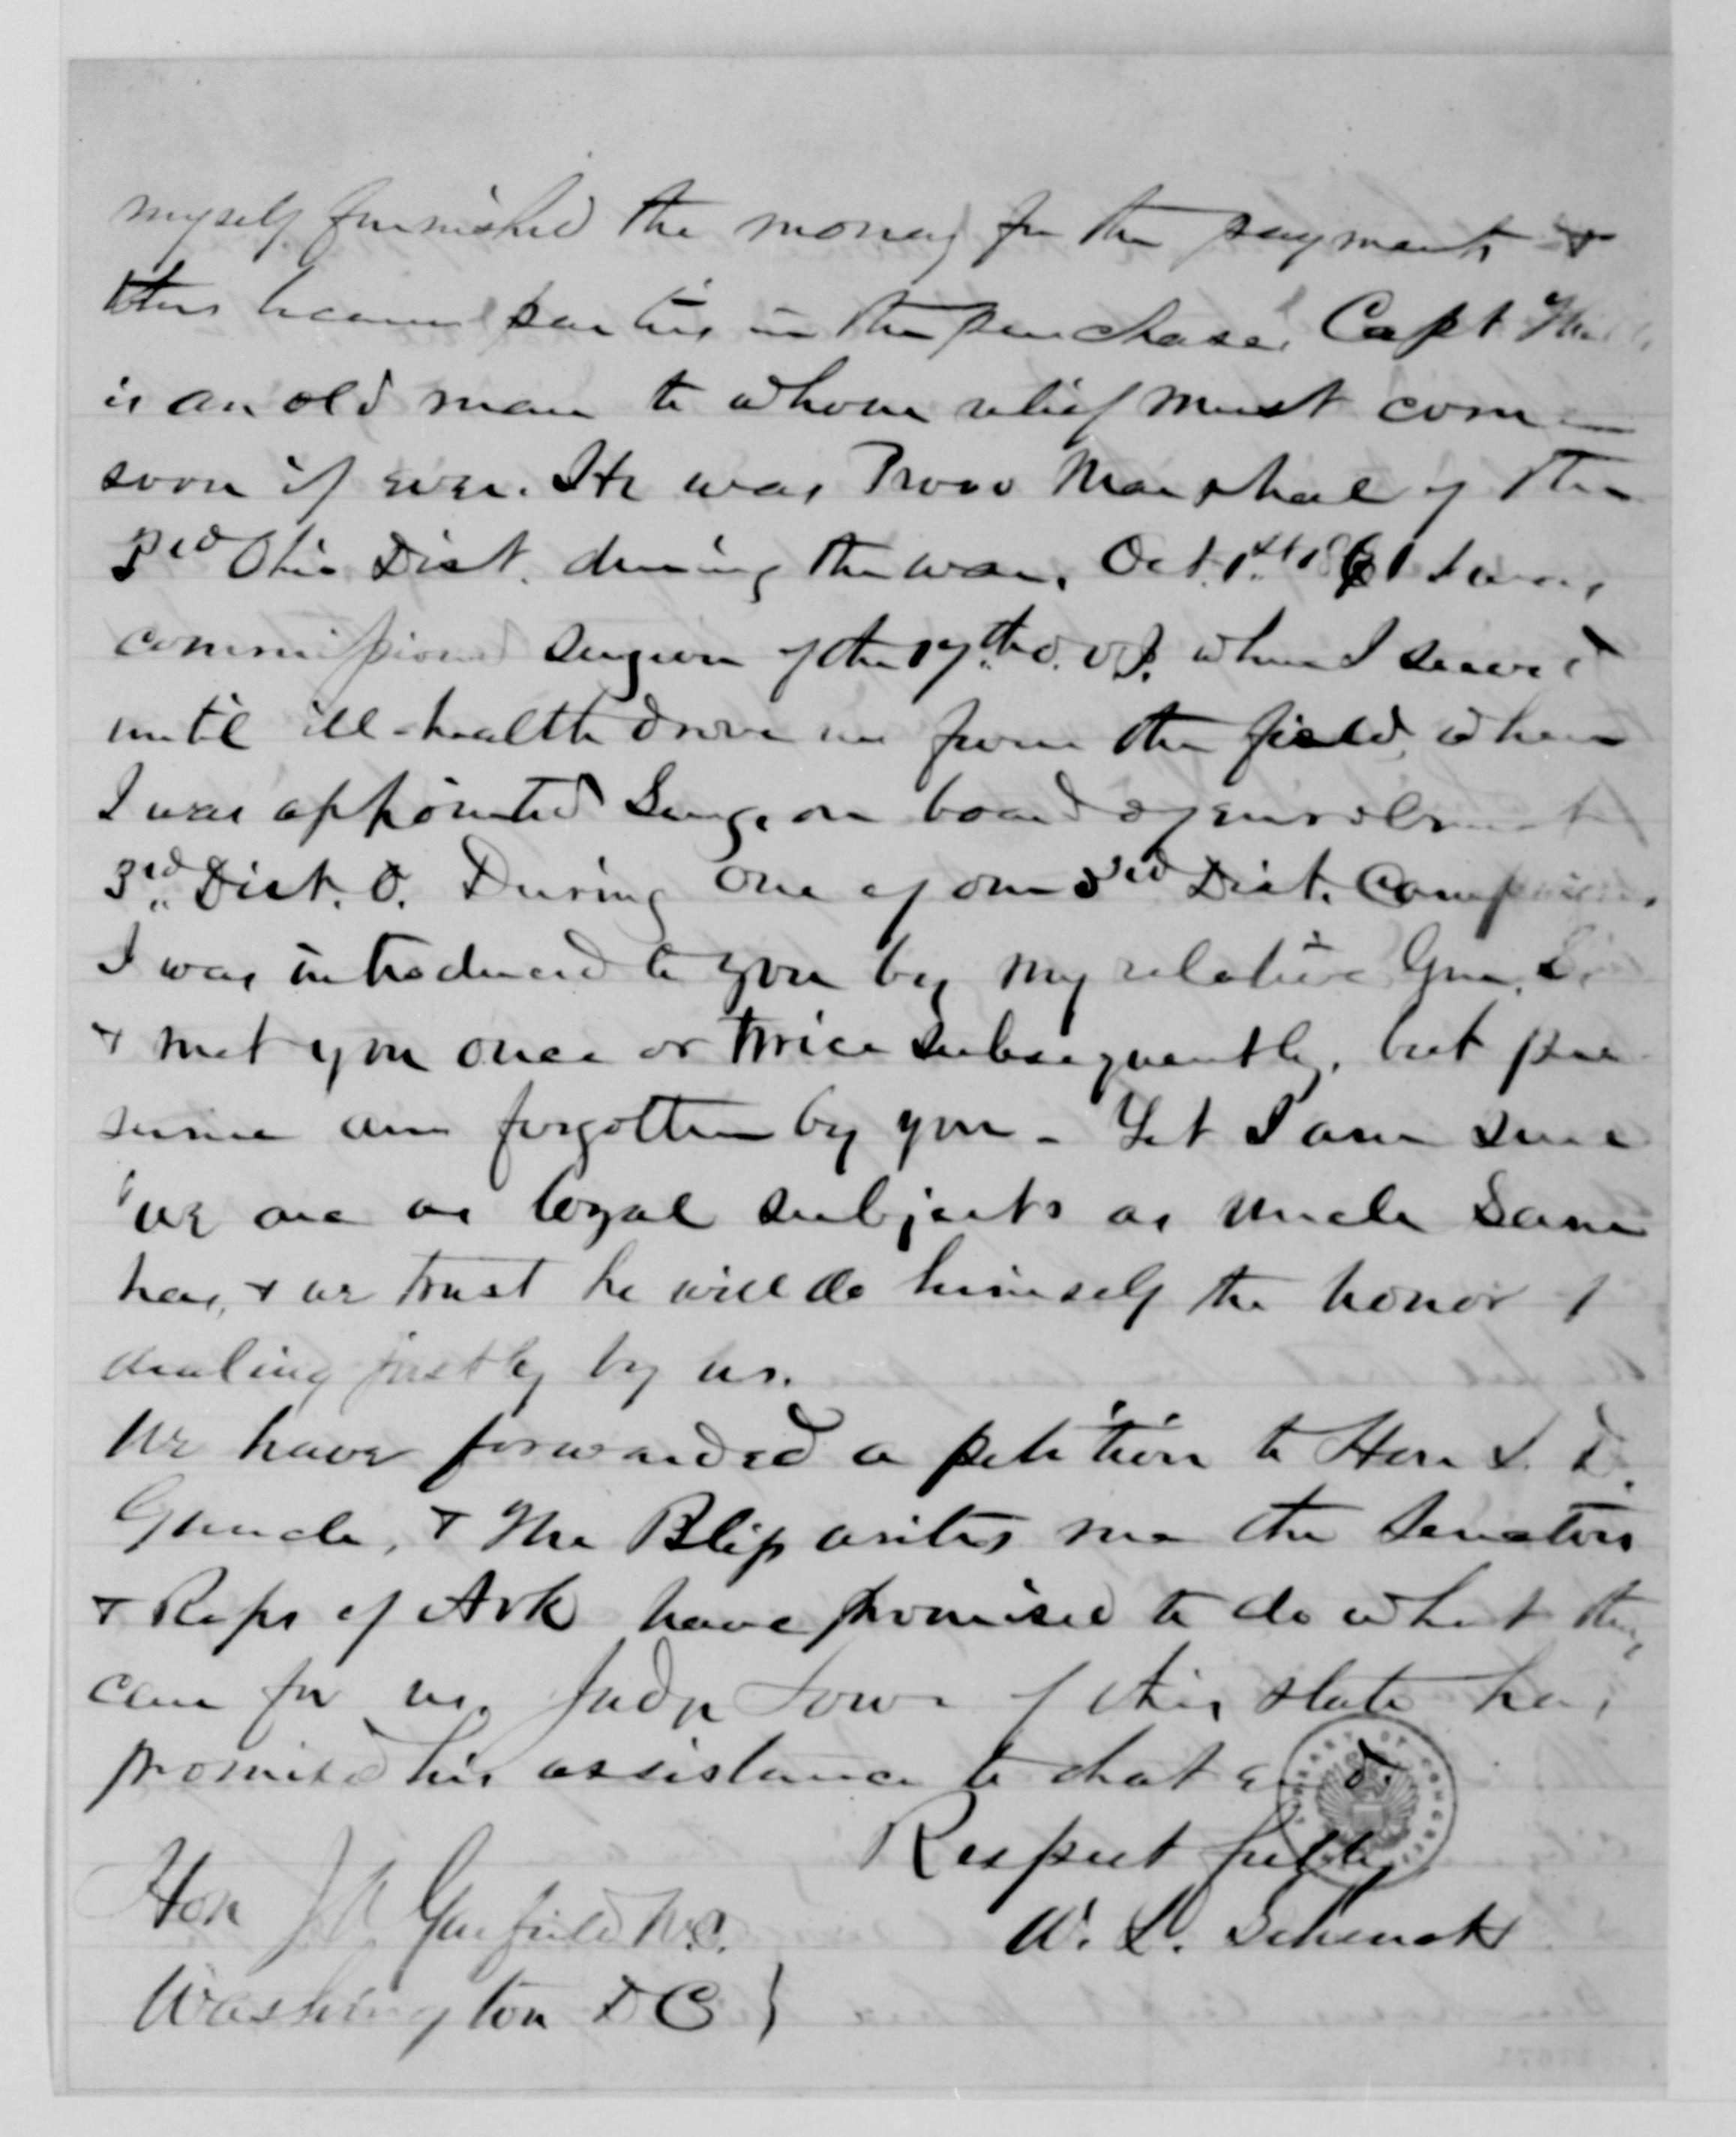 myself furnished the money for the payment &
thus became parties in the purchase. Capt
is an old man to whom relief must come
soon if ever. He was Provo Marshal of the
3rd Ohio Dist. during the war. Oct. 1st 1861 I was
commissioned Surgeon of the 17th O.V.I. where I served
until ill-health drove me from the field, when
I was appointed Surgeon board of enrolment
3rd Dist. O. During one of our 3rd Dist. Campaigns
I was introduced to you by my relative Gen. S.
& met you once or twice subsequently, but pre
sume am forgotten by you - Yet I am sure
we are as loyal subjects as Uncle Sam
has, & we trust he will do himself the honor of
dealing justly by us.
We have forwarded a petition to Hon
& Mr Bliss writes me the Senators
& Reps of Ark have promised to do what they
can for us. Judge Lowe of this state has
promised his assistance to that end.
Respectfully
W. L. Schenck
Hon J A Garfield M.C.
Washington D C }
LIBRARY OF CONGRESS